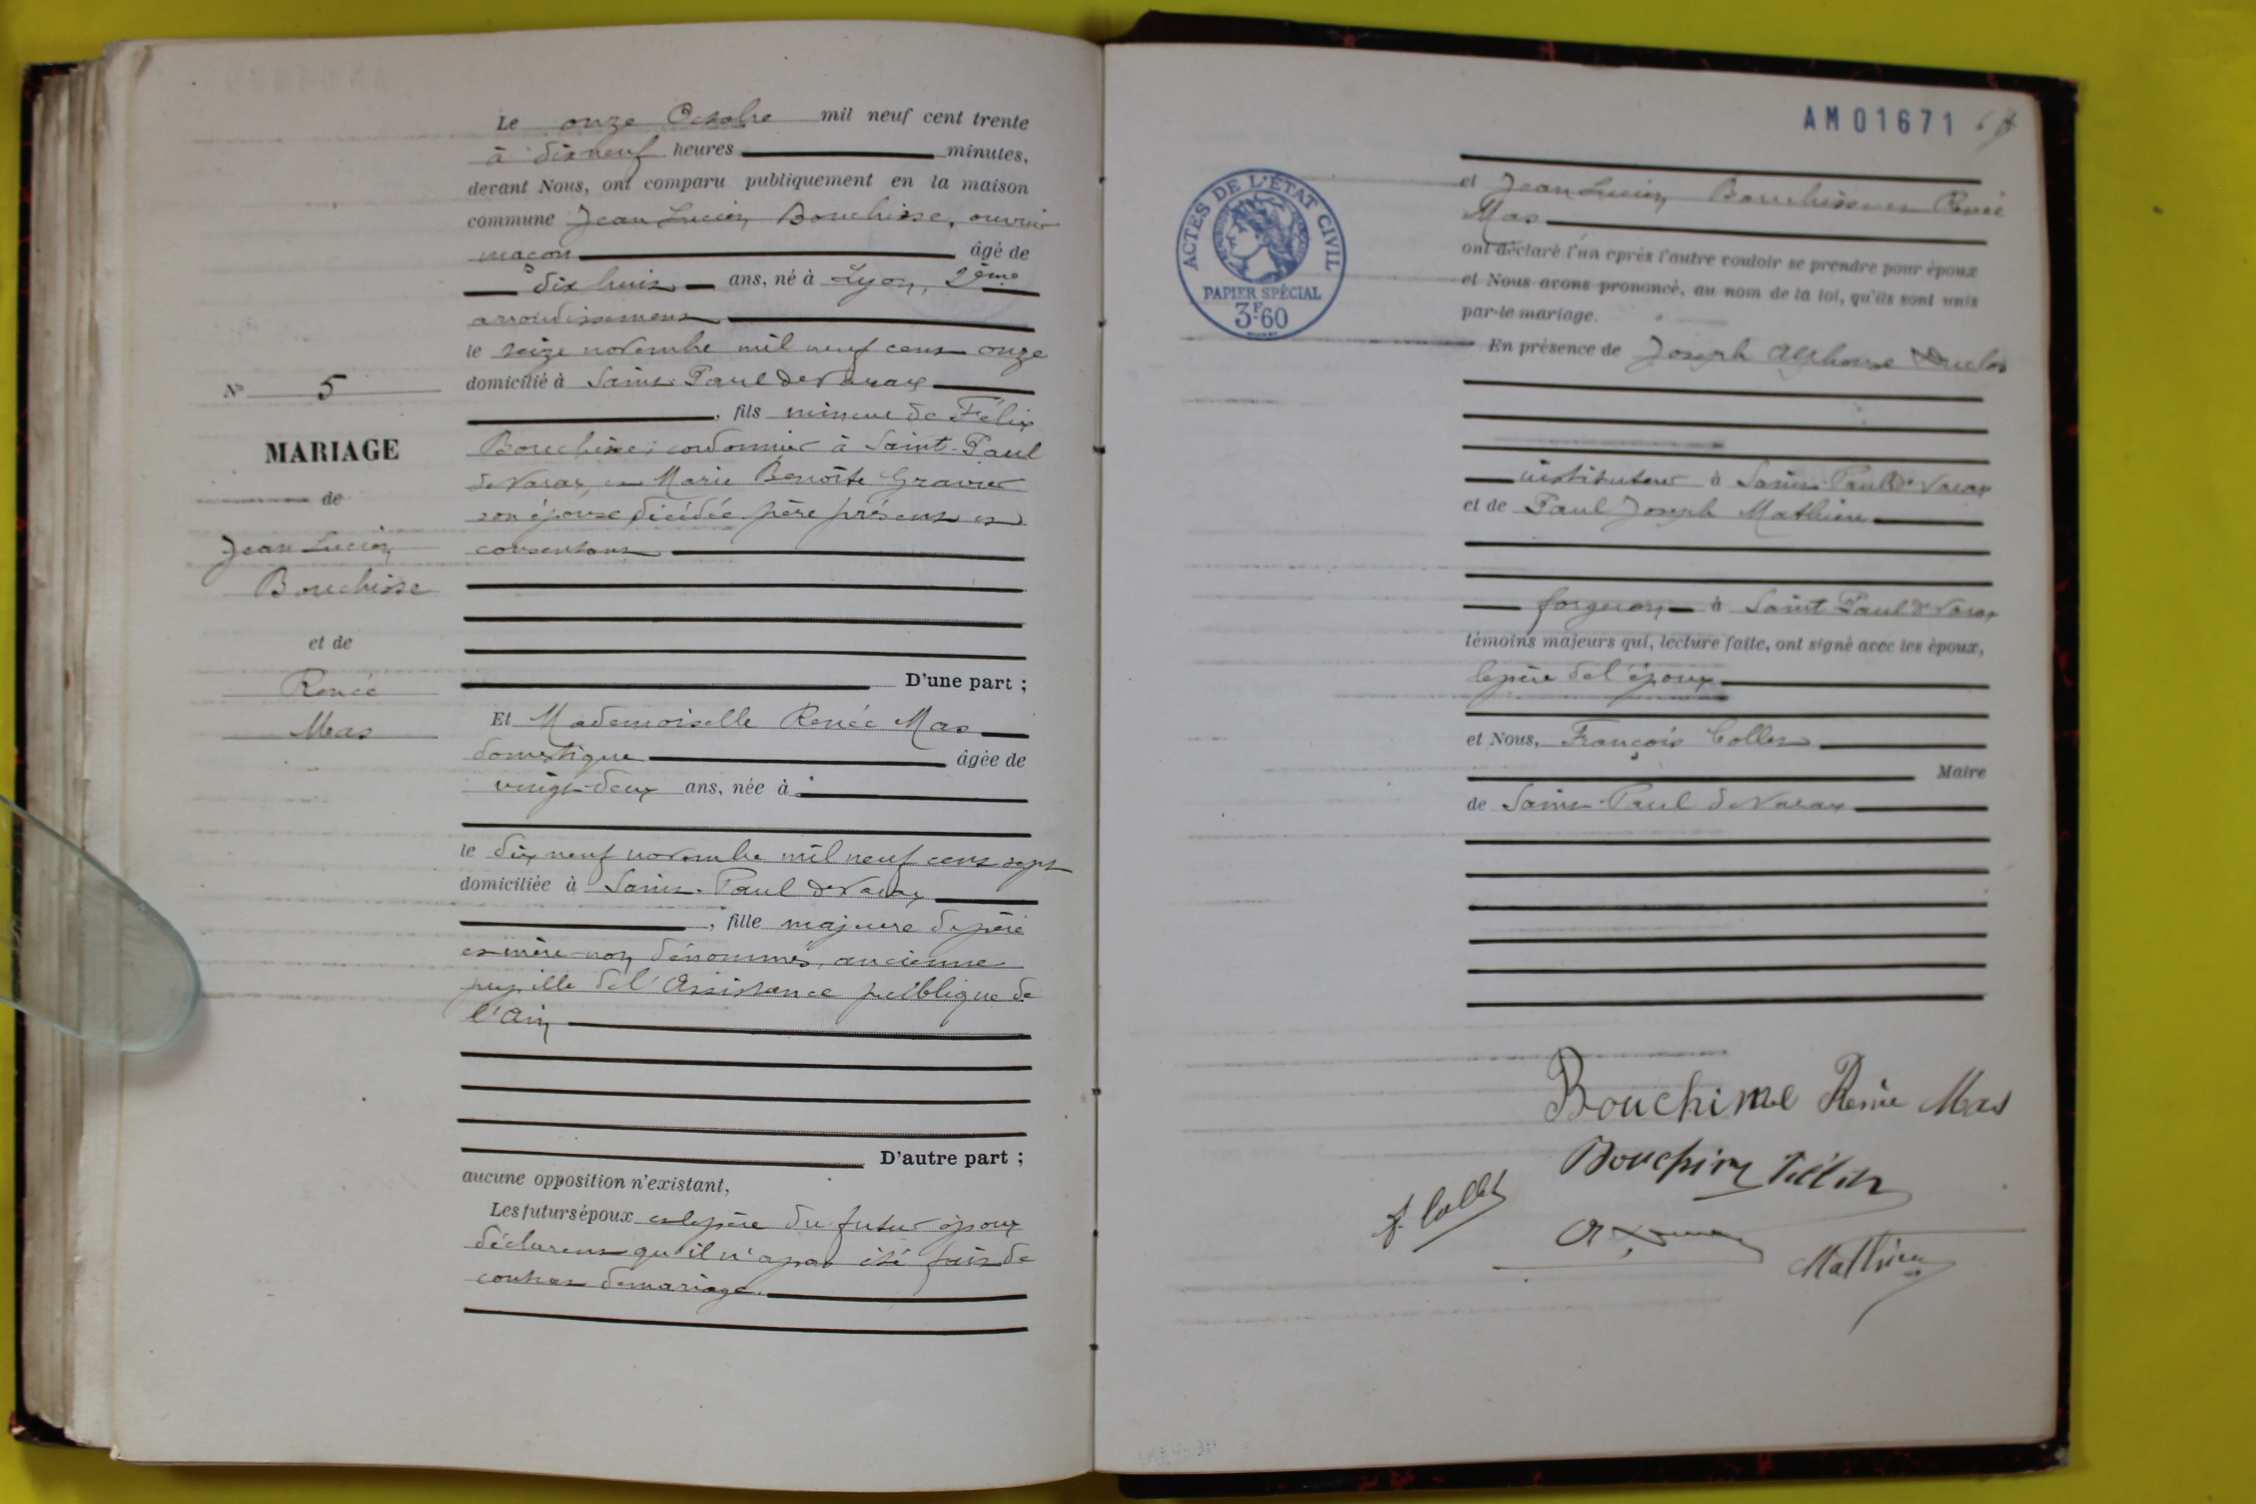 Le onze Octobre mil neuf cent trente
à dix neuf heures minutes,
devant Nous, ont comparu publiquement en la maison
commune Jean Lucien Bouchisse, ouvrier
maçon âgé de
dix huit ans, né à Lyon, 2ème
arrondissement
le seize novembre mil neuf cent onze
domicilié à Saint-Paul de Varax
, fils mineur de Félix
Bouchisse, cordonnier à Saint-Paul
de Varax, et Marie Benoîte Gravier
son épouse décédée père présent et
consentant
D'une part ;
Nº 5
MARIAGE
de
Jean Lucien
Bouchisse
et de
Renée
Mas
Et Mademoiselle Renée Mas
domestique âgée de
vingt-deux ans, née à
le dix neuf novembre mil neuf cent sept
domiciliée à Saint-Paul de Varax
, fille majeure de père
et mère non dénommés, ancienne
pupille de l'Assistance publique de
l'Ain
D'autre part ;
aucune opposition n'existant,
Les futurs époux et le père du futur époux
déclarent qu'il n'a pas été fait de
contrat de mariage.
AM01671
ACTES DE L'ÉTAT CIVIL
PAPIER SPÉCIAL
3F60
et Jean Lucien Bouchisse et Renée
Mas
ont déclaré l'un après l'autre vouloir se prendre pour époux
et Nous avons prononcé, au nom de la loi, qu'ils sont unis
par le mariage.
En présence de Joseph Alphonse Duclos
instituteur à Saint-Paul de Varax
et de Paul Joseph Mathieu
forgeron à Saint Paul de Varax
témoins majeurs qui, lecture faite, ont signé avec les époux,
le père de l'époux
et Nous, François Collet
Maire
de Saint-Paul de Varax
Bouchisse Renée Mas
Bouchisse Félix
f. Collet
Mathieu